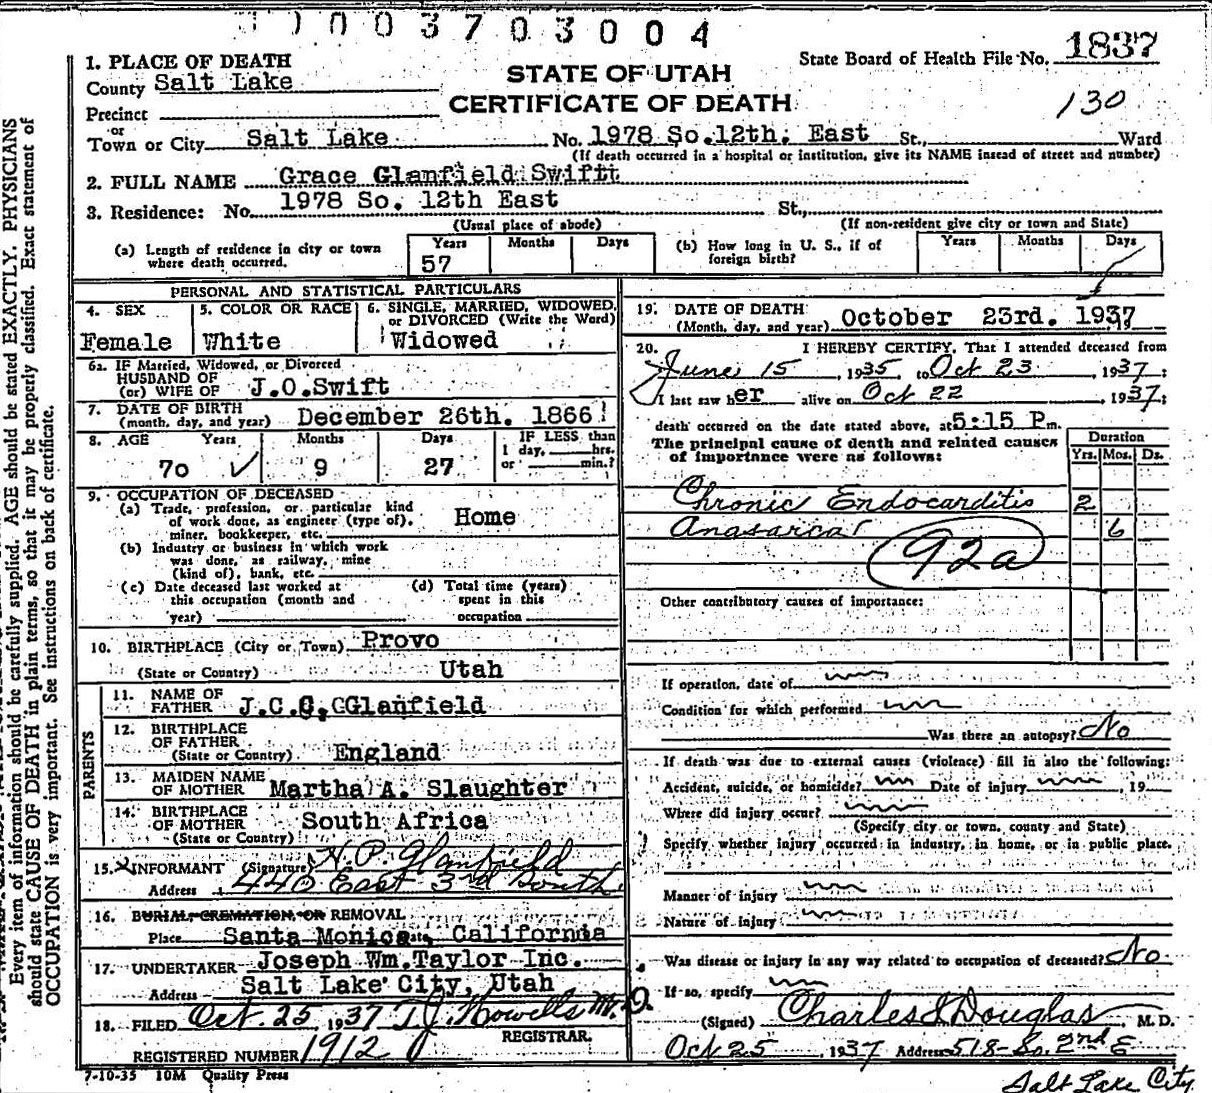 1003703004
State Board of Health File No. 1837
130
STATE OF UTAH
CERTIFICATE OF DEATH
1. PLACE OF DEATH
County Salt Lake
Precinct
or
Town or City Salt Lake No. 1978 So.12th. East St., Ward
(If death occurred in a hospital or institution, give its NAME instead of street and number)
2. FULL NAME Grace Glanfield Swiftt
3. Residence: No. 1978 So. 12th East St.,
(Usual place of abode) (If non-resident give city or town and State)
(a) Length of residence in city or town where death occurred. Years 57 Months Days
(b) How long in U. S., if of foreign birth? Years Months Days
PERSONAL AND STATISTICAL PARTICULARS
4. SEX Female
5. COLOR OR RACE White
6. SINGLE, MARRIED, WIDOWED, or DIVORCED (Write the Word) Widowed
6a. IF Married, Widowed, or Divorced
HUSBAND OF
(or) WIFE OF J.O.Swift
7. DATE OF BIRTH
(month, day, and year) December 26th. 1866
8. AGE Years 70 Months 9 Days 27 IF LESS than 1 day, hrs. or min.?
9. OCCUPATION OF DECEASED
(a) Trade, profession, or particular kind
of work done, as engineer (type of), Home
miner, bookkeeper, etc.
(b) Industry or business in which work
was done, as railway, mine
(kind of), bank, etc.
(c) Date deceased last worked at this occupation (month and year)
(d) Total time (years) spent in this occupation
10. BIRTHPLACE (City or Town) Provo
(State or Country) Utah
PARENTS
11. NAME OF FATHER J.C.G.CGlanfield
12. BIRTHPLACE OF FATHER
(State or Country) England
13. MAIDEN NAME OF MOTHER Martha A. Slaughter
14. BIRTHPLACE OF MOTHER South Africa
(State or Country)
15. X INFORMANT (Signature) H.P. Glanfield
Address 440 East 3rd South
16. BURIAL CREMATION, OR REMOVAL
Place Santa Monica California
17. UNDERTAKER Joseph Wm.Taylor Inc.
Address Salt Lake City, Utah
18. FILED Oct. 25, 1937 T.J. Howells M.D.
REGISTRAR.
REGISTERED NUMBER 1912
7-10-35 10M Quality Press
19. DATE OF DEATH
(Month, day, and year) October 23rd. 1937
20. I HEREBY CERTIFY, That I attended deceased from
June 15, 1935, to Oct 23, 1937;
I last saw her alive on Oct 22, 1937;
death occurred on the date stated above, at 5:15 P m.
The principal cause of death and related causes
of importance were as follows:
Duration
Yrs. Mos. Ds.
Chronic Endocarditis 2
Anasarca 6
92a
Other contributory causes of importance:
If operation, date of
Condition for which performed
Was there an autopsy? No
If death was due to external causes (violence) fill in also the following:
Accident, suicide, or homicide? Date of injury , 19
Where did injury occur?
(Specify city or town, county and State)
Specify whether injury occurred in industry, in home, or in public place.
Manner of injury
Nature of injury
Was disease or injury in any way related to occupation of deceased? No
If so, specify
(Signed) Charles Douglas, M. D.
Oct 25, 1937 Address 518-So. 2nd E
Salt Lake City
Every item of information should be carefully supplied. AGE should be stated EXACTLY. PHYSICIANS
should state CAUSE OF DEATH in plain terms, so that it may be properly classified. Exact statement of
OCCUPATION is very important. See instructions on back of certificate.